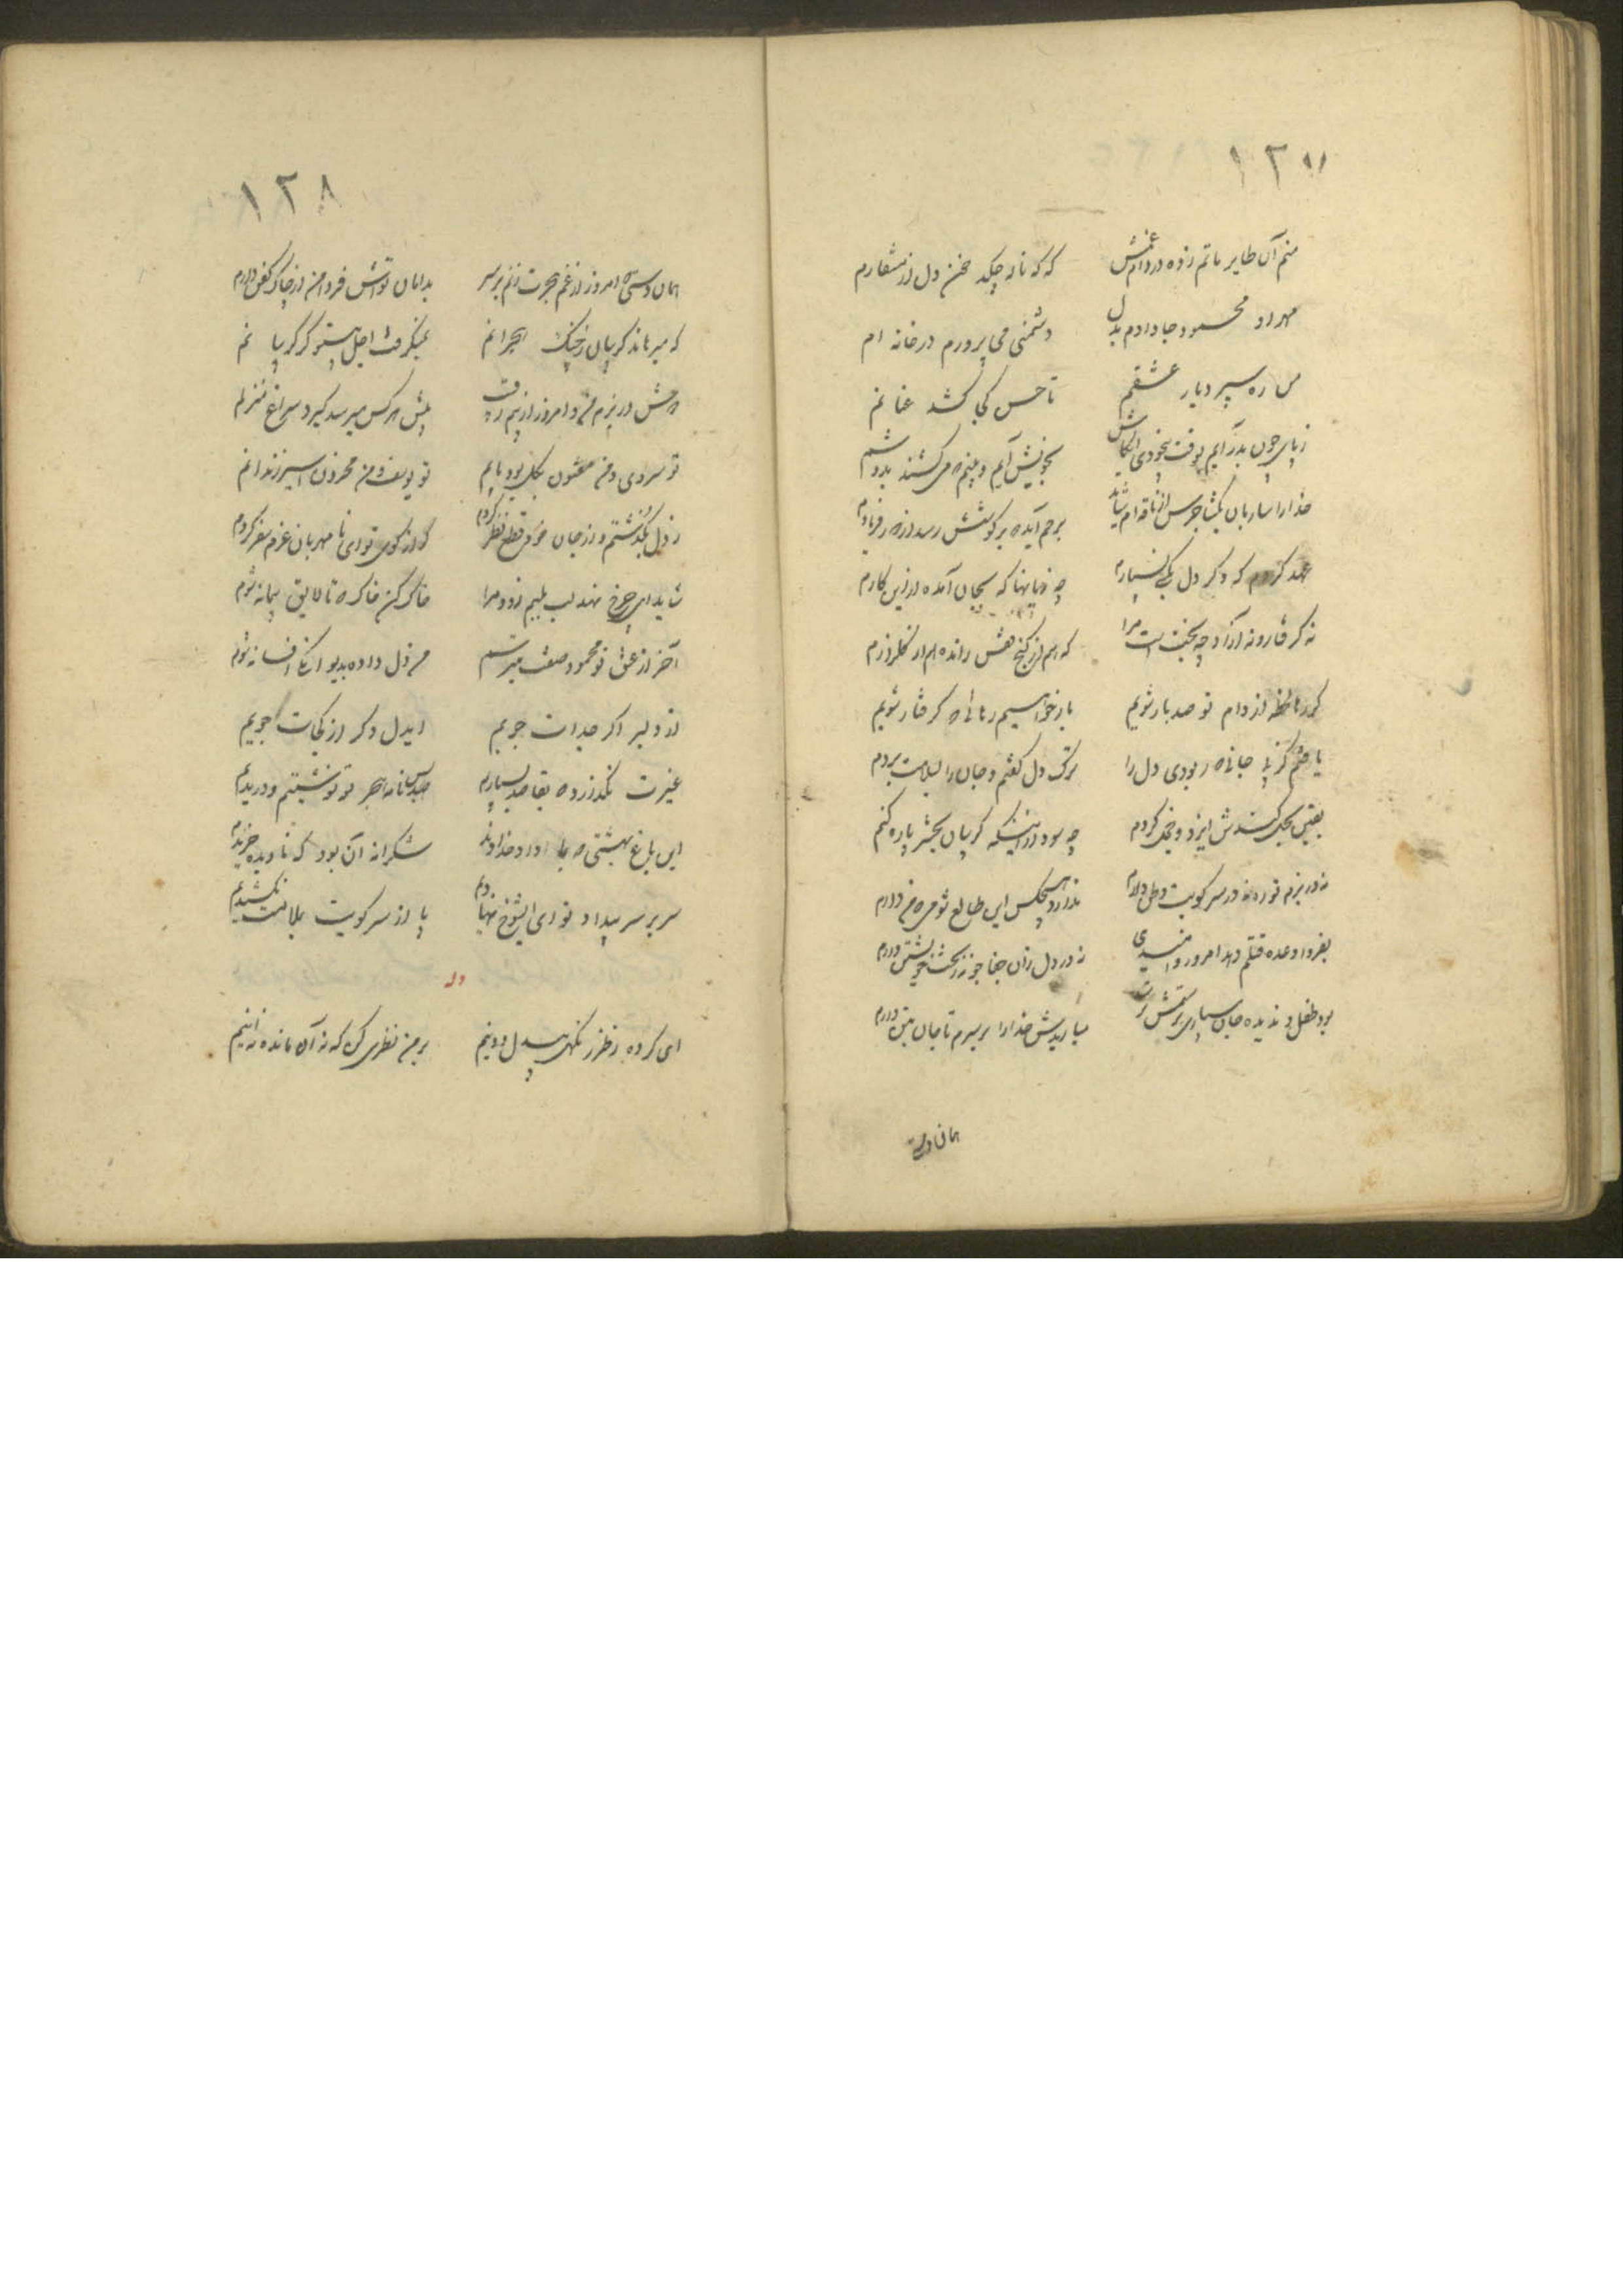 ١٢٧
منم آن طایر ماتم زده در دام غمش که که ناله چکد خون دل از منقارم
مهر او محمود جا دادم بدل دشمنی می پرورم در خانه ام
من ره سپر دیار عشقم تا حسن کی کشد عنانم
ز پای چون بدر آیم بوقت بیخودی ایکاش بخویش آیم و بینم که می کشند بدوشم
خدا را ساربان بگشا جرس از ناقه ام شاید برحم آید چه بر گوشش رسد از ره فریادم
عهد کردم که دگر دل بکسی نسپارم چه زیانها که بجان آمده از این کارم
نه گرفتار و نه آزاد چه بخت است مرا که هم از کنج قفس رانده هم از گلزارم
گر رها لحظه از دام تو صد بار شویم باز خواهیم رهائی که گرفتار شویم
یافتم کز پی جانی چه ربودی دل را ترک دل گفتم و جان را بسلامت بردم
چه سود از اینکه گریبان بحشر پاره کنم
نه در بزم تو ره نه در سر کویت وطن دارم ندارد هیچکس این طالع شومی که من دارم
بفردا وعده قتلم دهد امروز و امیدی نه در دل زان جفا جو نه ز بخت خویشتن دارم
بود طفل و ندیده جان سپاری میاریدش خدا را بر سرم تا جان بتن دارم
همان دستی
١٢٨
همان دستی که امروز از غم هجرت زنم بر سر بدامان تواش فردا من از چاک کفن دارم
که میرهاند گریبان ز چنگ هجرانم نمیگرفت اجل پیشتر گر گریبانم
دوش در بزم من و امروز از بیم رقیب پیش هر کس میرسد گیرد سراغ منزلم
تو سروی و من مفتون بگل بود پایم تو یوسف و من محزون اسیر زندانم
ز دل بگذشتم و از جان خود قطع نظر کردم که از کوی تو ای نا مهربان عزم سفر کردم
شاید ای چرخ نهد لب بلبم زود مرا خاک کن خاک که تا لایق پیمانه شوم
آخر از عشق تو محمود صفت میترسم من دل داده بدیوانگی افسانه شوم
از دلبر اگر جدات جویم ایدل دگر از کجات جویم
غیرت نگذارد که بقاصد بسپاریم صد نامه هجر تو نوشتیم و دریدیم
این باغ بهشتی که بما داد خداوند شکرانه آن بود که نادیده خریدیم
سر بر سر بیداد تو ای شوخ نهادیم پا از سر کویت بملامت نکشیدیم
وله
ای کرده ز طرز نگهی بیدل و دینم بر من نظری کن که نه آن مانده نه اینم